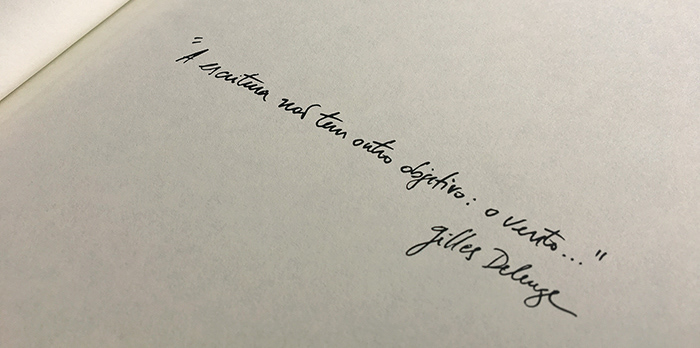 "A escritura não tem outro objetivo: o vento..."
Gilles Deleuze